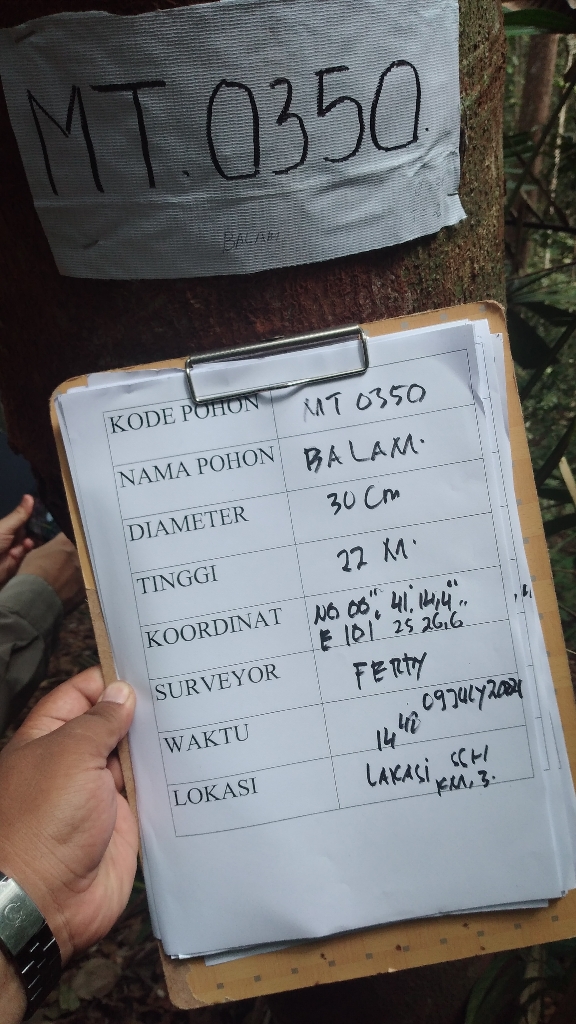 MT.0350.
BALAM
KODE POHON MT 0350
NAMA POHON BALAM.
DIAMETER 30 Cm
TINGGI 22 M.
KOORDINAT N0 00". 41. 14,4"
E 101 25 26,6"
SURVEYOR FERTY
WAKTU 14 40 09 JULY 2024
LOKASI LAKASI SCH
KM, 3.